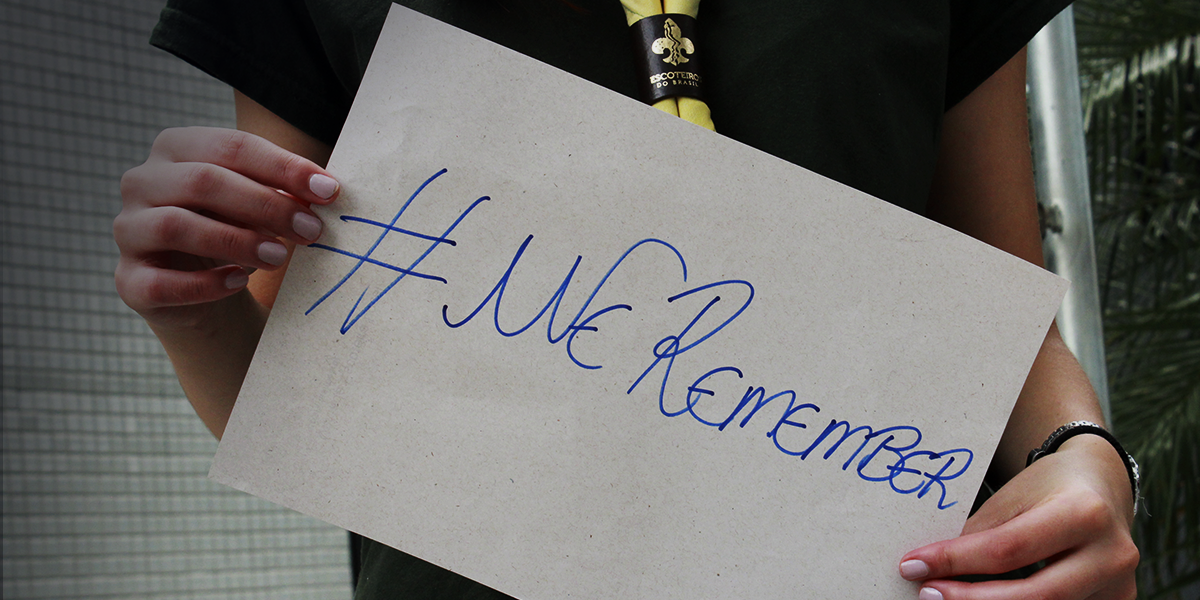 ESCOTEIROS
DO BRASIL
#WE REMEMBER